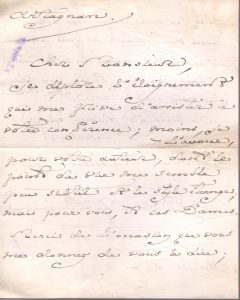 Cher Monsieur,
je déplore l'éloignement
qui me prive d'assister à
votre conférence ; moins, je
l'avoue,
pour votre auteur, dont le
point de vue me semble
peu subtil et le style étrange,
mais pour vous, et ces Dames.
Merci de l'occasion que vous
me donnez de vous le dire ;